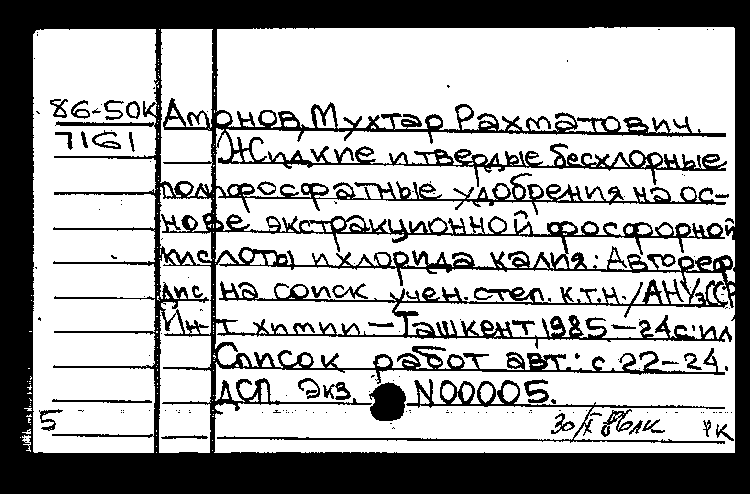 86-50К Амонов, Мухтар Рахматович.
7161 Жидкие и твердые бесхлорные
полифосфатные удобрения на ос-
нове экстракционной фосфорной
кислоты и хлорида калия: Автореф.
дис. на соиск. учен. степ. к.т.н. /АН УзССР
Ин-т химии. — Ташкент, 1985 — 24с: ил
Список работ авт.: с. 22-24.
ДСП. Экз. N00005.
5 30/X 86